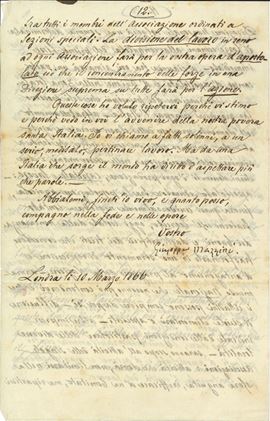 12.
fra tutti i membri dell'Associazione ordinati a
sezioni speciali. La divisione del lavoro in seno
ad ogni Associazione farà per la vostra opera d'aposto
lato ciò che il concentramento delle forze in una
direzione suprema su tutte farà per l'azione.
Queste cose ho voluto ripetervi perché vi stimo
e perché vedo in voi l'avvenire della nostra povera
santa Italia. Io vi chiamo a fatti solenni, a un
serio, meditato, pertinace lavoro. Ma da una
Italia che sorge il mondo ha diritto d'aspettare più
che parole. —
Abbiatemi, finch'io vivo, e quanto posso,
compagno nella fede e nelle opere
Vostro
Giuseppe Mazzini
Londra li 10 Marzo 1866